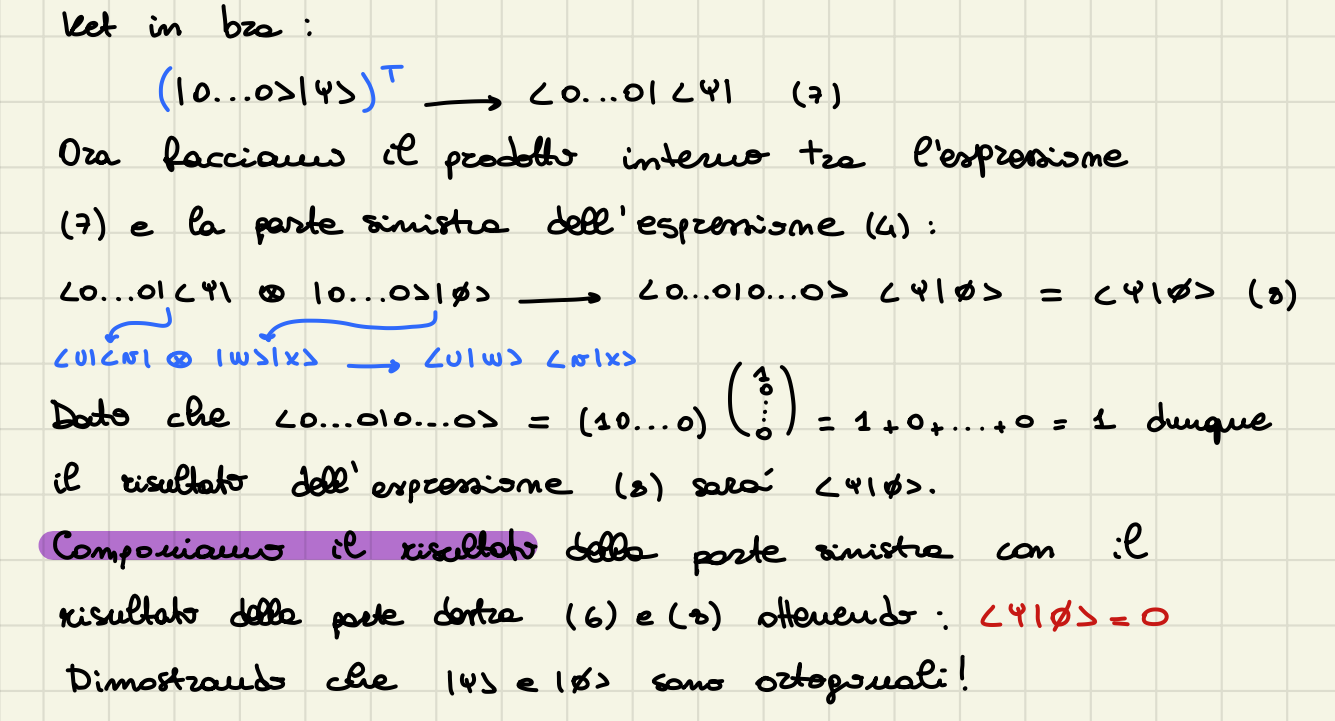 ket in bra :
(|0...0>|ψ>)^T ⟶ <0...0| <ψ| (7)
Ora facciamo il prodotto interno tra l'espressione
(7) e la parte sinistra dell'espressione (4) :
<0...0|<ψ| ⊗ |0...0>|ϕ> ⟶ <0...0|0...0> <ψ|ϕ> = <ψ|ϕ> (8)
<u|<v| ⊗ |w>|x> ⟶ <u|w> <v|x>
Dato che <0...0|0...0> = (10...0) (1 0 ⋮ 0) = 1+0+...+0 = 1 dunque
il risultato dell'espressione (8) sará <ψ|ϕ>.
Componiamo il risultato della parte sinistra con il
risultato della parte destra (6) e (8) ottenendo : <ψ|ϕ> = 0
Dimostrando che |ψ> e |ϕ> sono ortogonali!